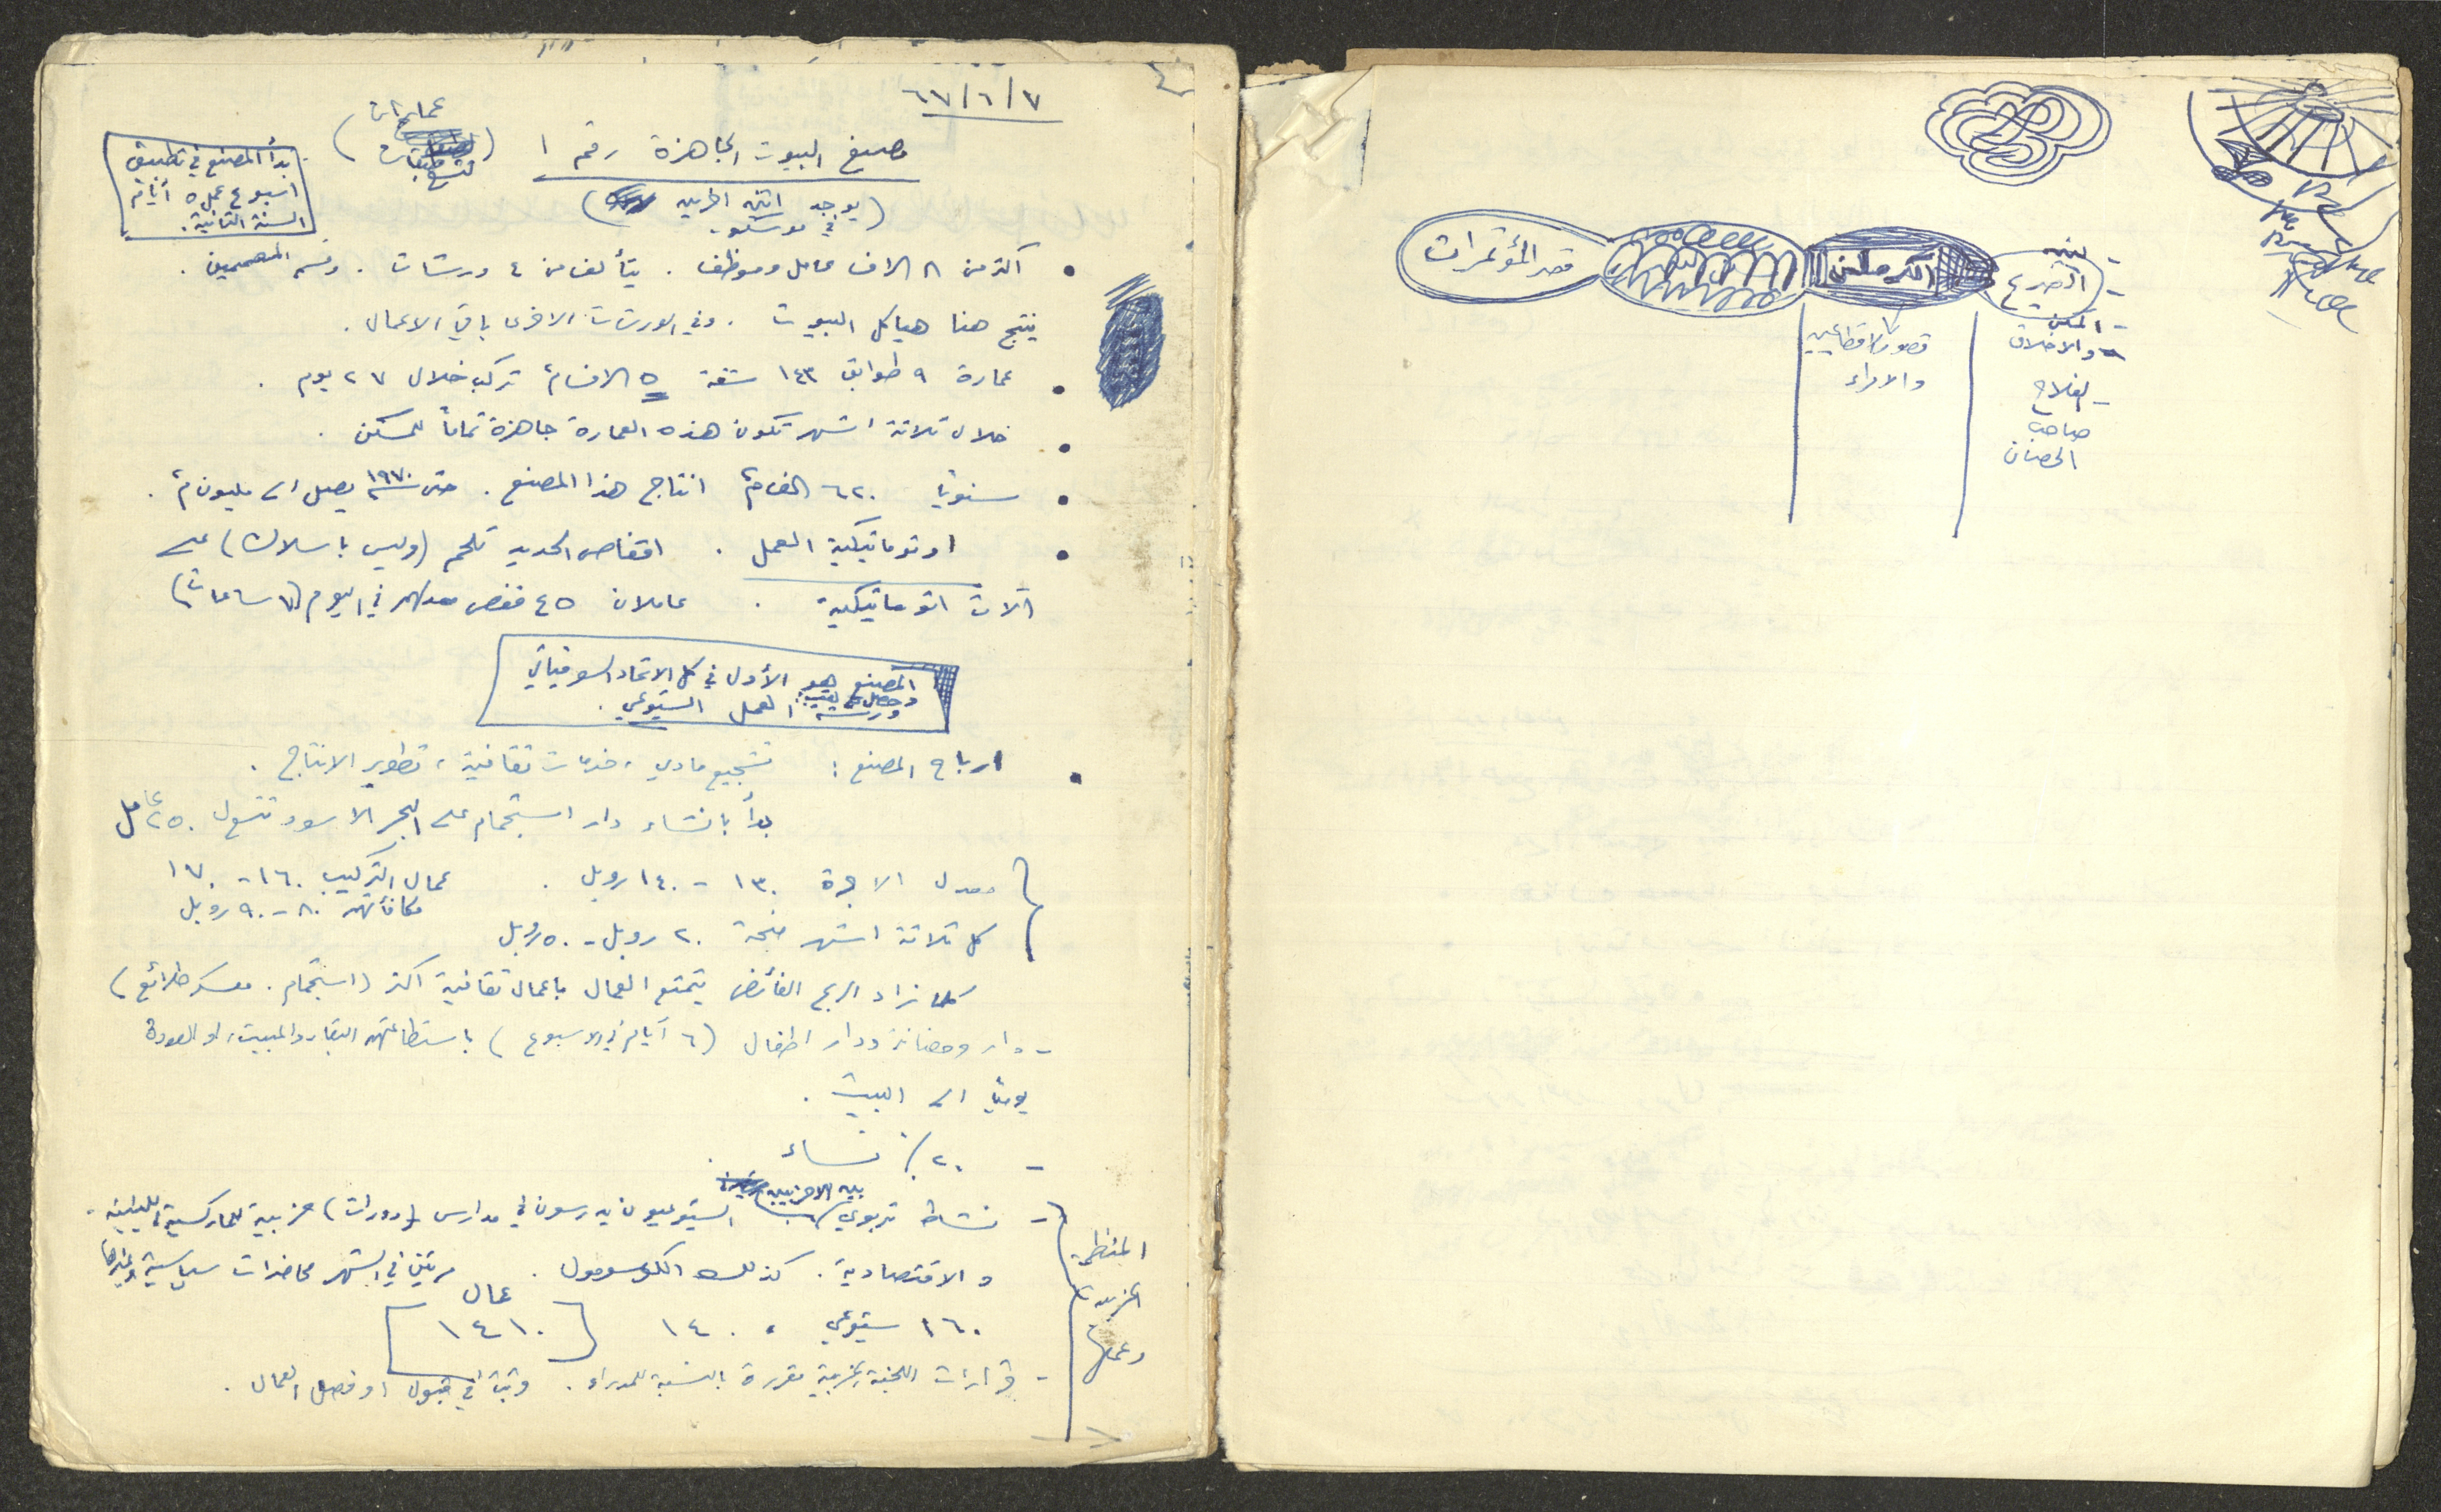 ٦٧/٦/٧
مصنع البيوت الجاهزة رقم ١ (عمارات
تسع طبقات)
(يوجد اثنين اخريين
في موسكو)
بدأ المصنع في تطبيق
اسبوع عمل ٥ أيام
السنة الثانية.
• اكثر من ٨ الاف عامل وموظف . يتألف من ٤ ورشات . وقسم المصممين .
ينتج هنا هياكل البيوت . وفي الورشات الاخرى باقي الاعمال .
• عمارة ٩ طوابق ١٤٣ شقة ٥ الاقسام تركب خلال ٢٧ يوم .
• خلال ثلاثة اشهر تكون هذه العمارة جاهزة تماماً للسكن .
• سنوياً ٦٢٠ الف م٢ انتاج هذا المصنع . حتى سنة ١٩٧٠ يصل الى مليون م٢ .
• اوتوماتيكية العمل . اقفاص الحديد تلحم (وليس باسلاك) على
آلات اتوماتيكية . عاملان ٤٥ قفص معدلهم في اليوم (٧ ساعات)
المصنع هو الأول في كل الاتحاد السوفياتي
وحصل على لقب:
ورشة العمل الشيوعي .
• ارباح المصنع : تشجيع مادي ، خدمات ثقافية ، تطوير الانتاج .
بدأ بانشاء دار استجمام على البحر الاسود تتسع ل ٢٥٠ عامل
معدل الاجرة ١٣٠ - ١٤٠ روبل . عمال التركيب ١٦٠ - ١٧٠
مكافأتهم ٨٠ - ٩٠ روبل
كل ثلاثة اشهر منحة ٢٠ روبل - ٥٠ روبل
كلما زاد الربح الفائض يتمتع العمال باعمال ثقافية اكثر (استجمام . معسكر طلائع)
- دار وحضانة ودار اطفال (٦ أيام في الاسبوع) باستطاعتهم البقاء والمبيت، او العودة
يومياً الى البيت .
- ٢٠٪ نساء .
المنظمة
الحزبية
وعملها
- نشاط تربوي بين اللاحزبيين الشيوعيون يدرسون في مدارس (دورات) حزبية للماركسية اللينينية .
والاقتصادية . كذلك الكومسومول . مرتين في الشهر محاضرات سياسية وغيرها
١٦٠ شيوعي ، ١٤٠ [١٤١٠ عمال]
- قرارات اللجنة الحزبية مقررة بالنسبة للمدراء . وتبت في قبول او فصل العمال .
قصر المؤتمرات
الكرملن
قصور الاقطاعيين
والامراء
- لينين
- الضريح
- المكن
والاخلاق
- الفلاح
صاحب
الحصان